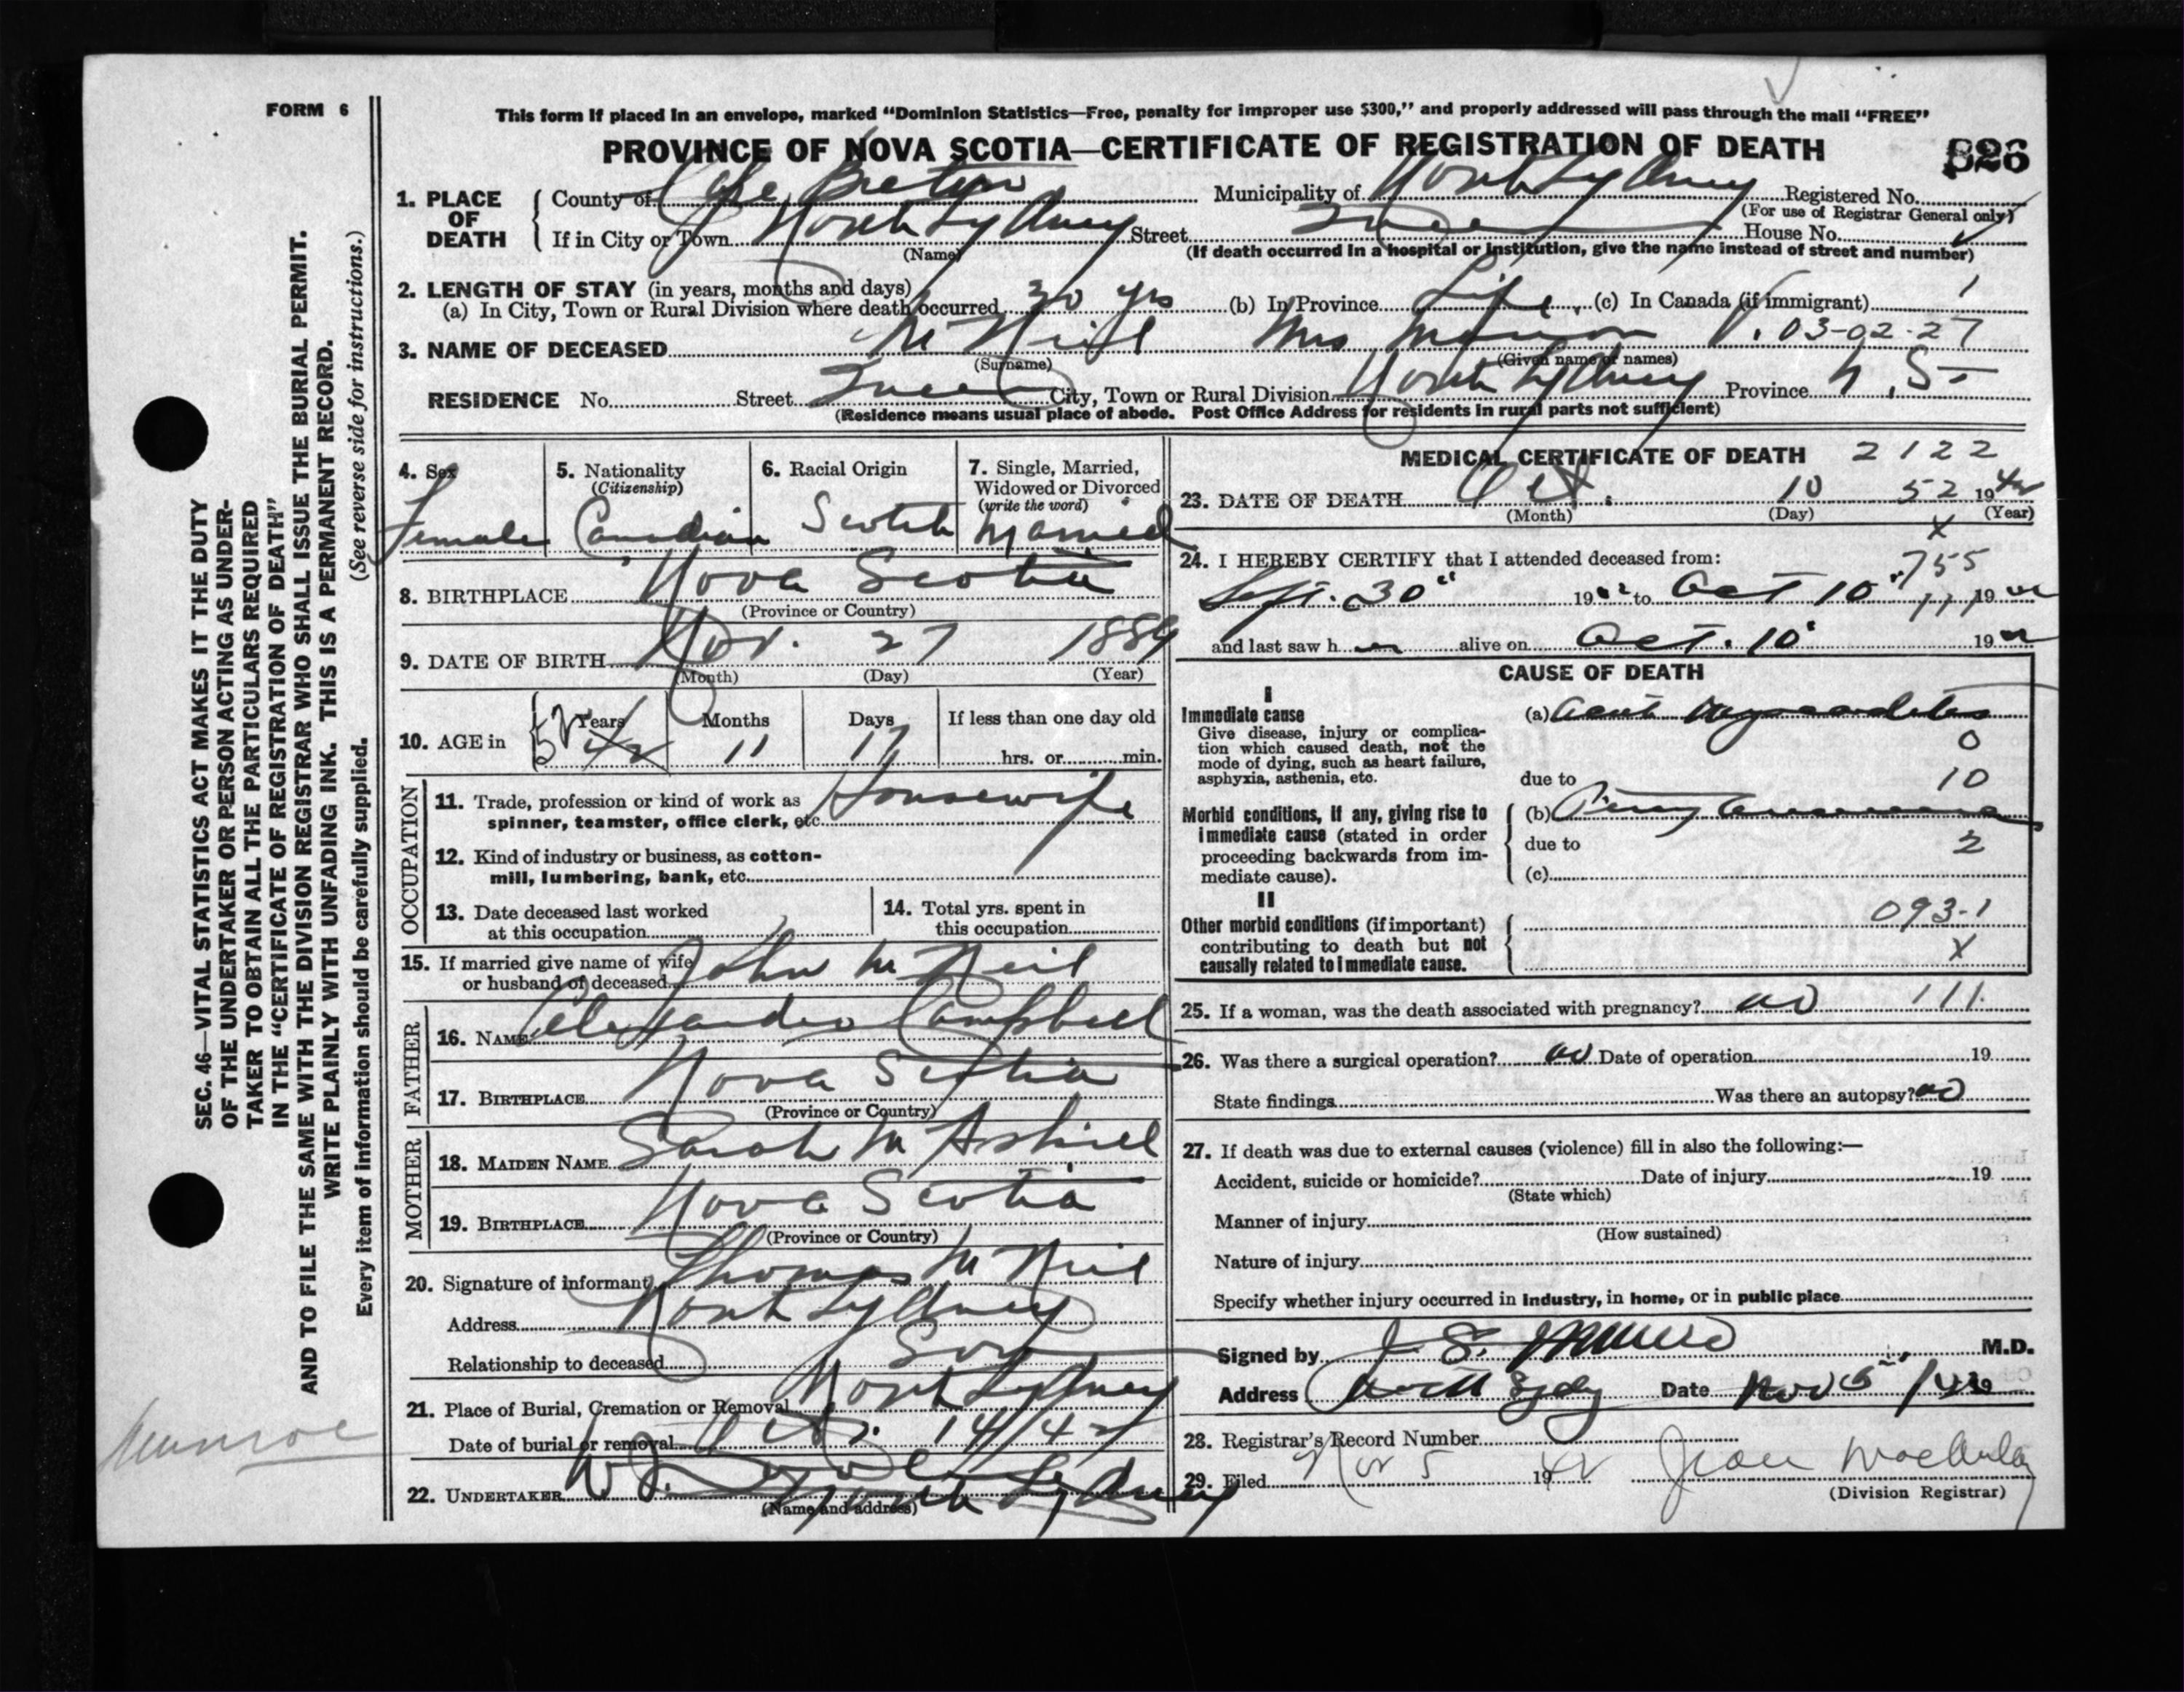 FORM 6
This form if placed in an envelope, marked “Dominion Statistics—Free, penalty for improper use $300,” and properly addressed will pass through the mail “FREE”
PROVINCE OF NOVA SCOTIA—CERTIFICATE OF REGISTRATION OF DEATH 826
1. PLACE OF DEATH
County of Cape Breton Municipality of North Sydney Registered No.
(For use of Registrar General only)
If in City or Town North Sydney Street Queen House No.
(Name) (If death occurred in a hospital or institution, give the name instead of street and number)
2. LENGTH OF STAY (in years, months and days)
(a) In City, Town or Rural Division where death occurred 30 yrs (b) In Province Life (c) In Canada (if immigrant) 1
3. NAME OF DECEASED Mc Neil Mrs 03-02-27
(Surname) (Given name or names)
RESIDENCE No. Street Queen City, Town or Rural Division North Sydney Province N.S.
(Residence means usual place of abode. Post Office Address for residents in rural parts not sufficient)
4. Sex
Female
5. Nationality
(Citizenship)
Canadian
6. Racial Origin
Scotch
7. Single, Married,
Widowed or Divorced
(write the word)
Married
8. BIRTHPLACE Nova Scotia
(Province or Country)
9. DATE OF BIRTH Nov. 27 1889
(Month) (Day) (Year)
10. AGE in
Years Months Days If less than one day old
52 42 11 17 hrs. or min.
OCCUPATION
11. Trade, profession or kind of work as
spinner, teamster, office clerk, etc. Housewife
12. Kind of industry or business, as cotton-
mill, lumbering, bank, etc.
13. Date deceased last worked
at this occupation
14. Total yrs. spent in
this occupation
15. If married give name of wife
or husband of deceased John Mc Neil
FATHER
16. NAME Alexander Campbell
17. BIRTHPLACE Nova Scotia
(Province or Country)
MOTHER
18. MAIDEN NAME Sarah Mc Askill
19. BIRTHPLACE Nova Scotia
(Province or Country)
20. Signature of informant Thomas Mc Neil
Address North Sydney
Relationship to deceased Son
21. Place of Burial, Cremation or Removal North Sydney
Date of burial or removal Oct. 14/42
22. UNDERTAKER W.J. North Sydney
(Name and address)
MEDICAL CERTIFICATE OF DEATH 2122
23. DATE OF DEATH Oct. 10 52 1942
(Month) (Day) (Year)
X
24. I HEREBY CERTIFY that I attended deceased from:
755
Sept. 30" 1942 to Oct 10" 1942
111
and last saw her alive on Oct. 10" 1942
CAUSE OF DEATH
I
Immediate cause
Give disease, injury or complica-
tion which caused death, not the
mode of dying, such as heart failure,
asphyxia, asthenia, etc.
(a) Acute Myocarditis
0
due to 10
Morbid conditions, if any, giving rise to
immediate cause (stated in order
proceeding backwards from im-
mediate cause).
(b)
due to 2
(c)
II
Other morbid conditions (if important)
contributing to death but not
causally related to immediate cause.
093-1
X
25. If a woman, was the death associated with pregnancy? no 111
26. Was there a surgical operation? no Date of operation 19
State findings Was there an autopsy? no
27. If death was due to external causes (violence) fill in also the following:—
Accident, suicide or homicide? Date of injury 19
(State which)
Manner of injury
(How sustained)
Nature of injury
Specify whether injury occurred in industry, in home, or in public place
Signed by J. S. Munro M.D.
Address North Sydney Date Nov 5 /42
28. Registrar's Record Number
29. Filed Nov 5 1942 Jean MacAulay
(Division Registrar)
SEC. 46—VITAL STATISTICS ACT MAKES IT THE DUTY
OF THE UNDERTAKER OR PERSON ACTING AS UNDER-
TAKER TO OBTAIN ALL THE PARTICULARS REQUIRED
IN THE “CERTIFICATE OF REGISTRATION OF DEATH”
AND TO FILE THE SAME WITH THE DIVISION REGISTRAR WHO SHALL ISSUE THE BURIAL PERMIT.
WRITE PLAINLY WITH UNFADING INK. THIS IS A PERMANENT RECORD.
Every item of information should be carefully supplied. (See reverse side for instructions.)
Munroe